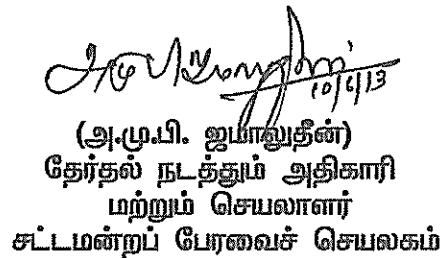 10/6/13
(அ.மு.பி. ஜமாலுதீன்)
தேர்தல் நடத்தும் அதிகாரி
மற்றும் செயலாளர்
சட்டமன்றப் பேரவைச் செயலகம்